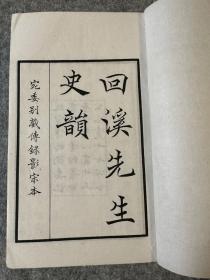 回溪先生
史韻
宛委别藏傳錄影宋本